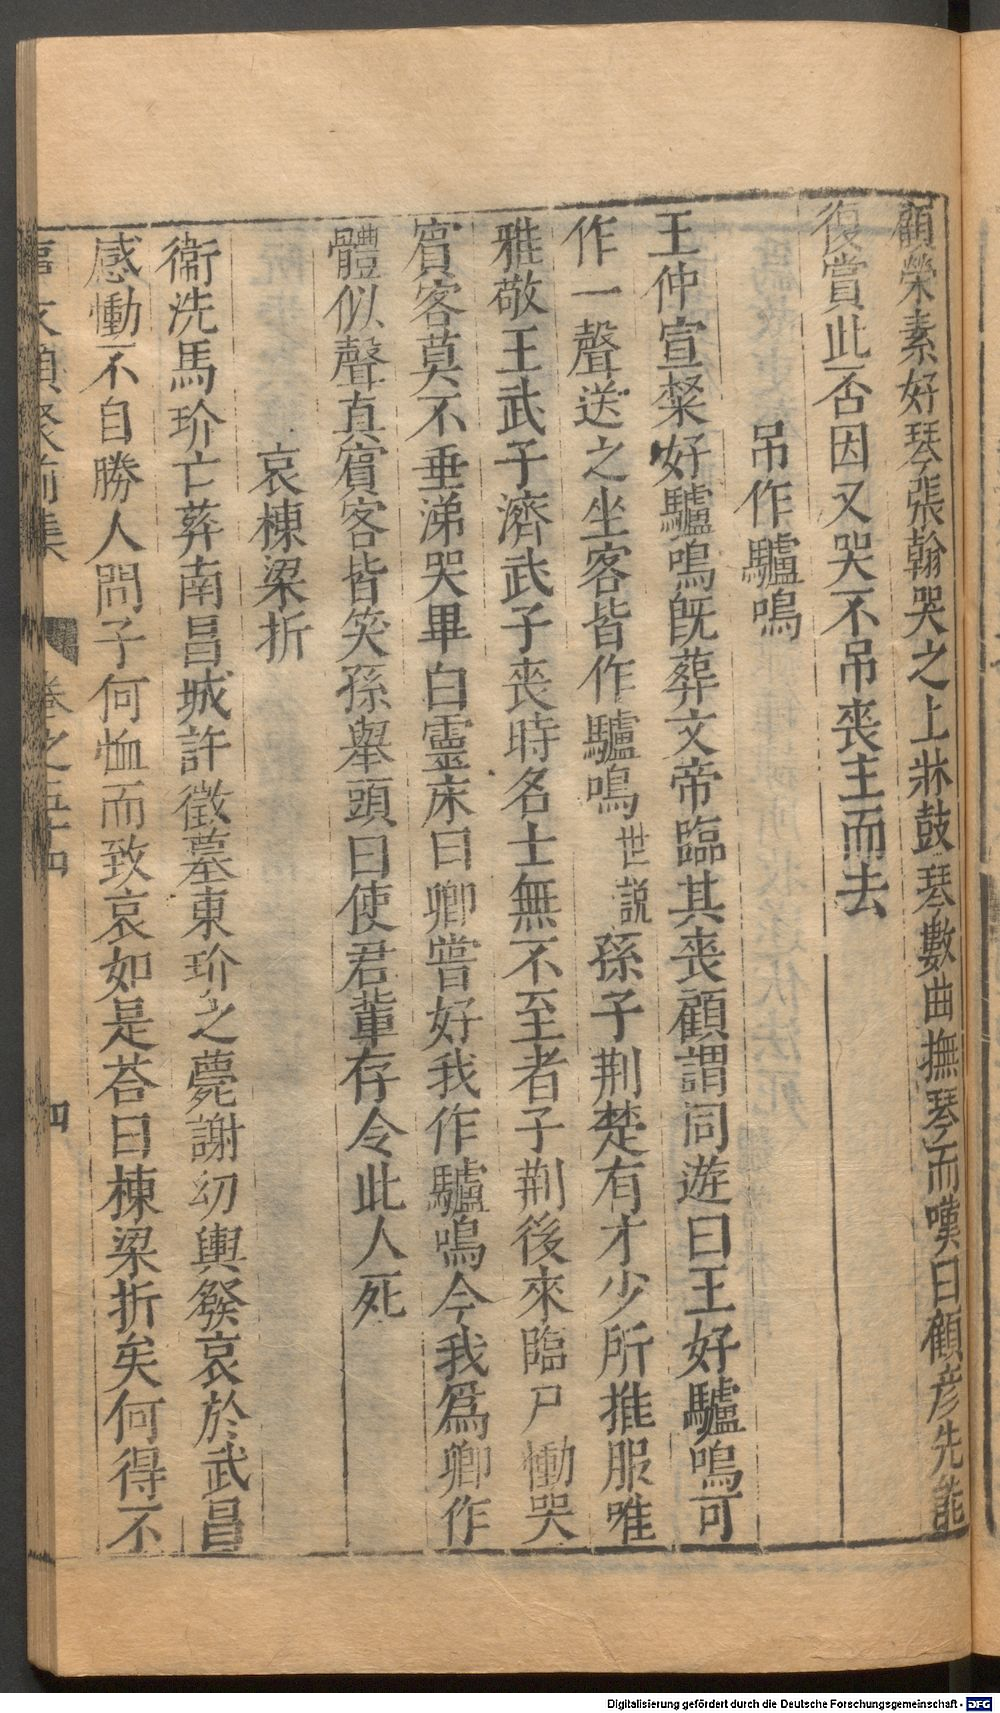 顧榮素好琴張翰哭之上牀鼓琴數曲撫琴而嘆曰顧彦先能
復賞此否因又哭不吊喪主而去
吊作驢鳴
王仲宣粲好驢鳴旣葬文帝臨其喪顧謂同遊曰王好驢鳴可
作一聲送之坐客皆作驢鳴世說孫子荆楚有才少所推服唯
雅敬王武子濟武子喪時名士無不至者子荆後來臨尸慟哭
賓客莫不垂涕哭畢白靈床曰卿嘗好我作驢鳴今我爲卿作
體似聲真賓客皆笑孫舉頭曰使君輩存令此人死
哀棟梁折
衞洗馬玠亡葬南昌城許徵墓東玠之薨謝幼輿發哀於武昌
感慟不自勝人問子何恤而致哀如是荅曰棟梁折矣何得不
事文類聚前集 卷之五十四 四
Digitalisierung gefördert durch die Deutsche Forschungsgemeinschaft - DFG